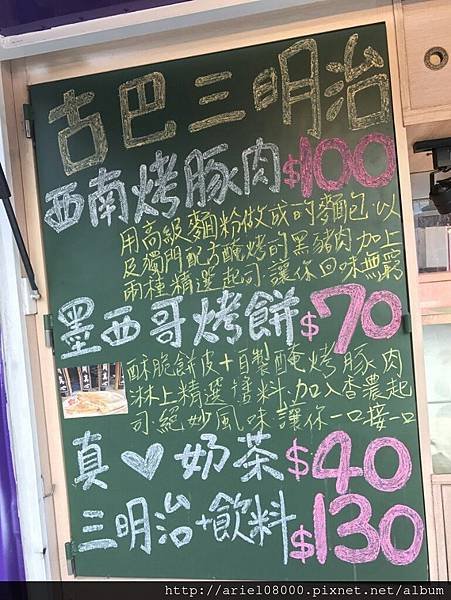 古巴三明治
西南烤豚肉 $100
用高級麵粉做成的麵包以
及獨門配方醃烤的黑豬肉加上
兩種精選起司讓你回味無窮
墨西哥烤餅 $70
酥脆餅皮+自製醃烤豚肉
淋上精選醬料加入香濃起
司絕妙風味讓你一口接一口
真♥奶茶 $40
三明治+飲料 $130
http://ariel08000.pixnet.net/album